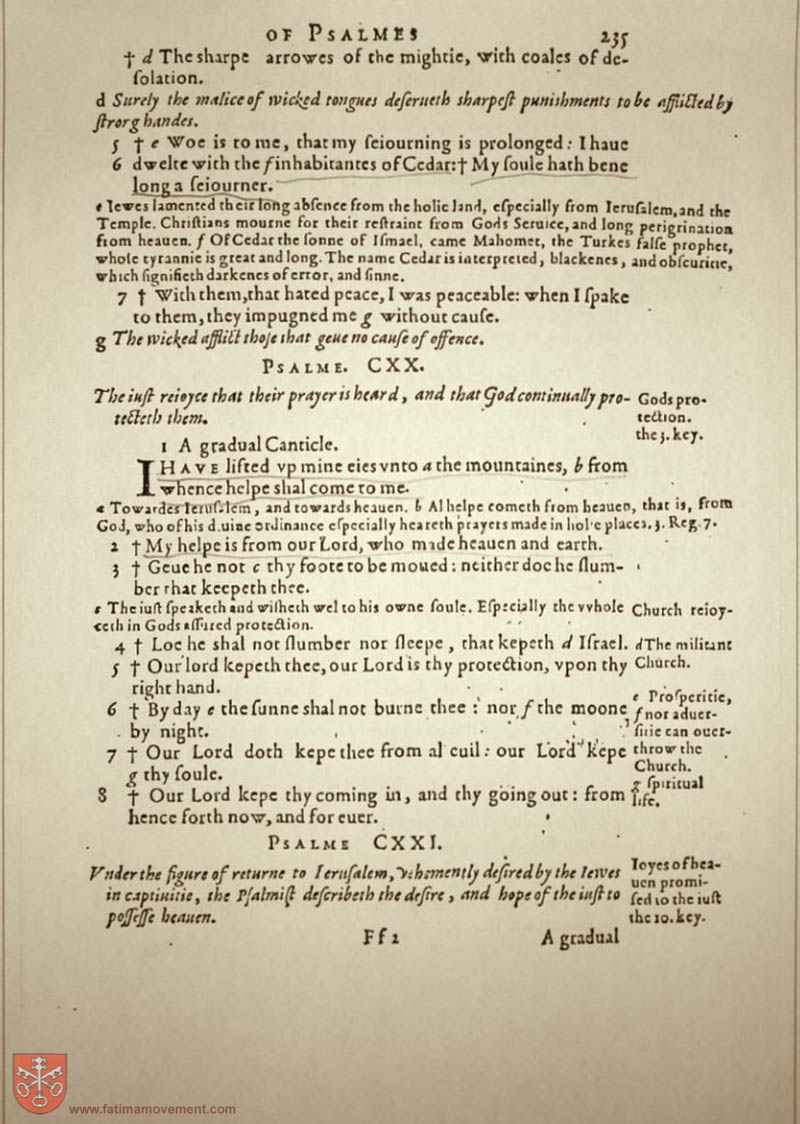 OF PSALMES 235
† d The sharpe arrowes of the mightie, with coales of de-
solation.
d Surely the malice of wicked tongues deserueth sharpest punishments to be afflicted by
strorg handes.
5 † e Woe is to me, that my seiourning is prolonged: I haue
6 dwelte with the f inhabitantes of Cedar: † My soule hath bene
long a seiourner.
e Iewes lamented their long absence from the holie land, especially from Ierusalem, and the
Temple. Christians mourne for their restraint from Gods Seruice, and long perigrination
from heauen. f Of Cedar the sonne of Ismael, came Mahomet, the Turkes false prophet,
whose tyrannie is great and long. The name Cedar is interpreted, blackenes, and obscuritie,
which signifieth darkenes of error, and sinne.
7 † With them, that hated peace, I was peaceable: when I spake
to them, they impugned me g without cause.
g The wicked afflict those that geue no cause of offence.
PSALME. CXX.
The iust reioyce that their prayer is heard, and that God continually pro-
tecteth them.
Gods pro-
tection.
the 3. key.
1 A gradual Canticle.
I HAVE lifted vp mine eies vnto a the mountaines, b from
whence helpe shal come to me.
a Towardes Ierusalem, and towards heauen. b Al helpe cometh from heauen, that is, from
God, who of his diuine ordinance especially heareth prayers made in holie places. 3. Reg. 7.
2 † My helpe is from our Lord, who made heauen and earth.
3 † Geue he not c thy foote to be moued: neither doe he slum-
ber that keepeth thee.
c The iust speaketh and wisheth wel to his owne soule. Especially the vvhole Church reioy-
ceth in Gods assured protection.
4 † Loe he shal not slumber nor sleepe, that kepeth d Israel.
d The militant
Church.
5 † Our lord kepeth thee, our Lord is thy protection, vpon thy
right hand.
6 † By day e the sunne shal not burne thee: nor f the moone
by night.
e Prosperitie,
f nor aduer-
sitie can ouer-
throw the
Church.
7 † Our Lord doth kepe thee from al euil: our Lord kepe
g thy soule.
g spiritual
life.
8 † Our Lord kepe thy coming in, and thy going out: from
hence forth now, and for euer.
PSALME CXXI.
Vnder the figure of returne to Ierusalem, vehemently desired by the Iewes
in captiuitie, the Psalmist describeth the desire, and hope of the iust to
possesse heauen.
Ioyes of hea-
uen promi-
sed to the iust
the 10. key.
Ff2 A gradual
www.fatimamovement.com